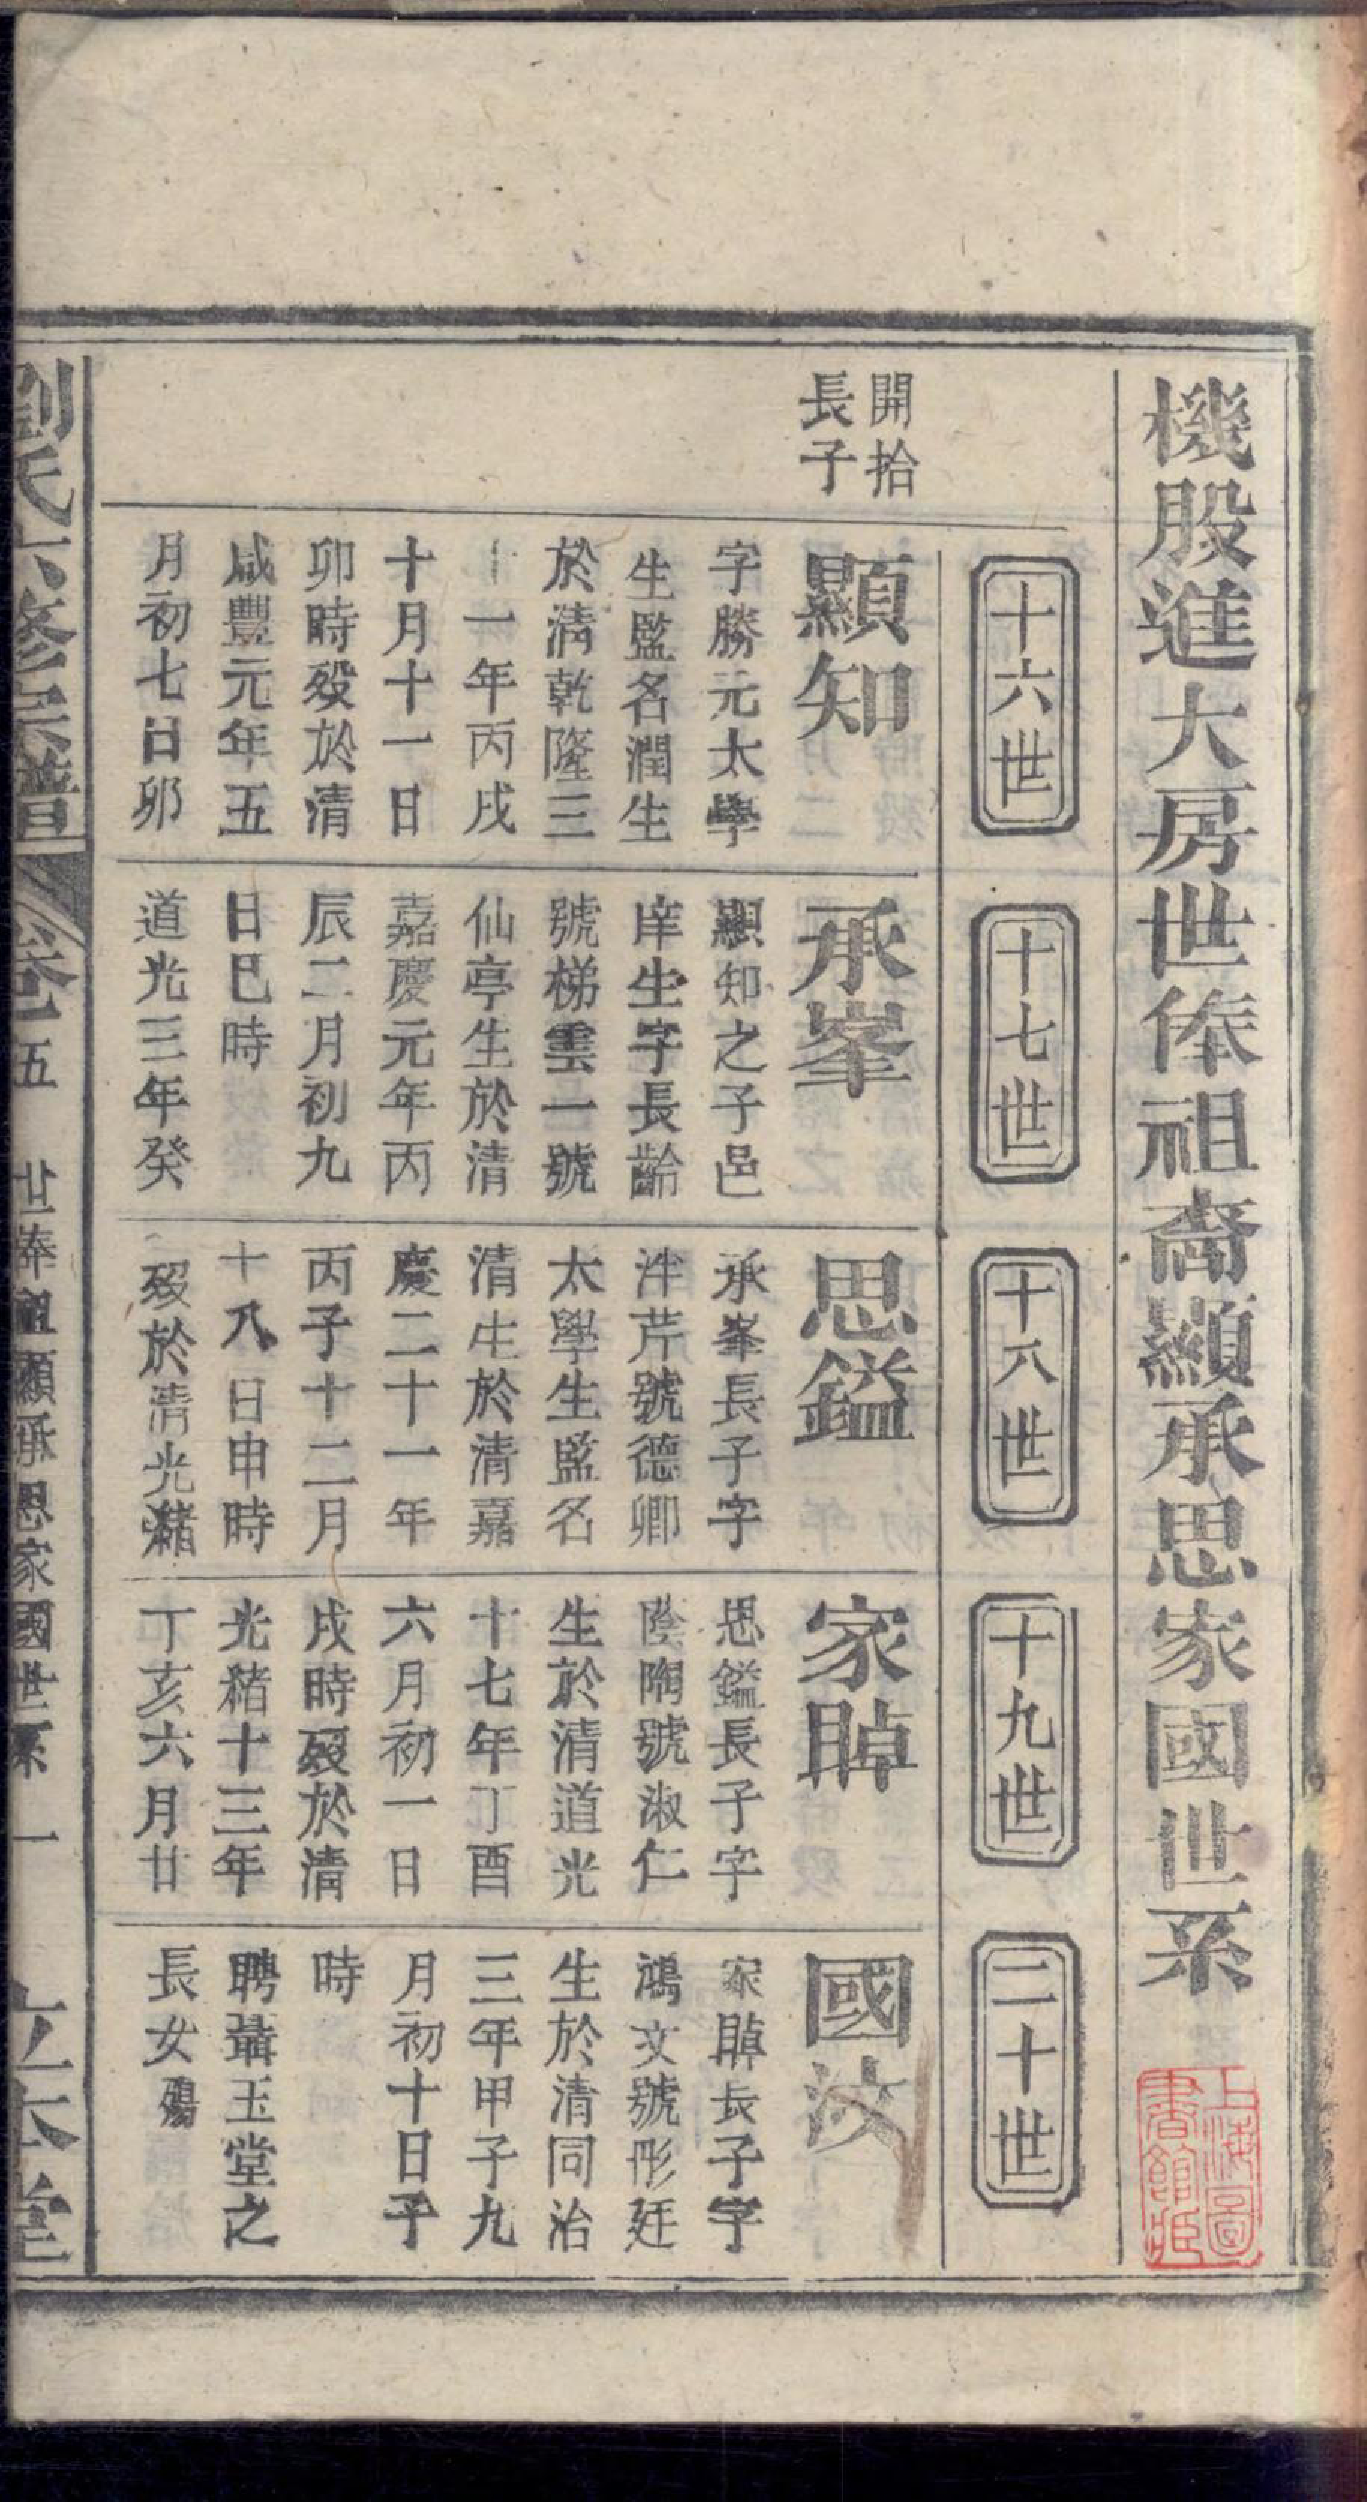 機股進大房世俸祖裔顯承思家國世系
上海圖
書館藏
十六世
十七世
十八世
十九世
二十世
開拾
長子
顯知
字勝元太學
生監名潤生
於清乾隆三
十一年丙戌
十月十一日
卯時殁於清
咸豐元年五
月初七日卯
承峯
顯知之子邑
庠生字長齡
號梯雲一號
仙亭生於清
嘉慶元年丙
辰二月初九
日巳時
道光三年癸
思鎰
承峯長子字
泮芹號德卿
太學生監名
清生於清嘉
慶二十一年
丙子十二月
十八日申時
殁於清光緒
家晫
思鎰長子字
陰陶號淑仁
生於清道光
十七年丁酉
六月初一日
戌時殁於清
光緒十三年
丁亥六月廿
國汶
家晫長子字
鴻文號彤廷
生於清同治
三年甲子九
月初十日子
時
聘聶玉堂之
長女殤
劉氏六修宗譜
卷五
世俸祖顯承思家國世系
一
立本堂